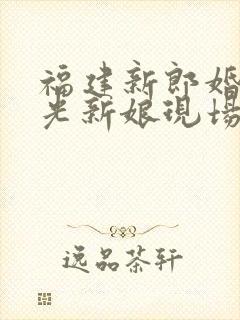 福建新郎婚
光新娘現場
逸品茶轩